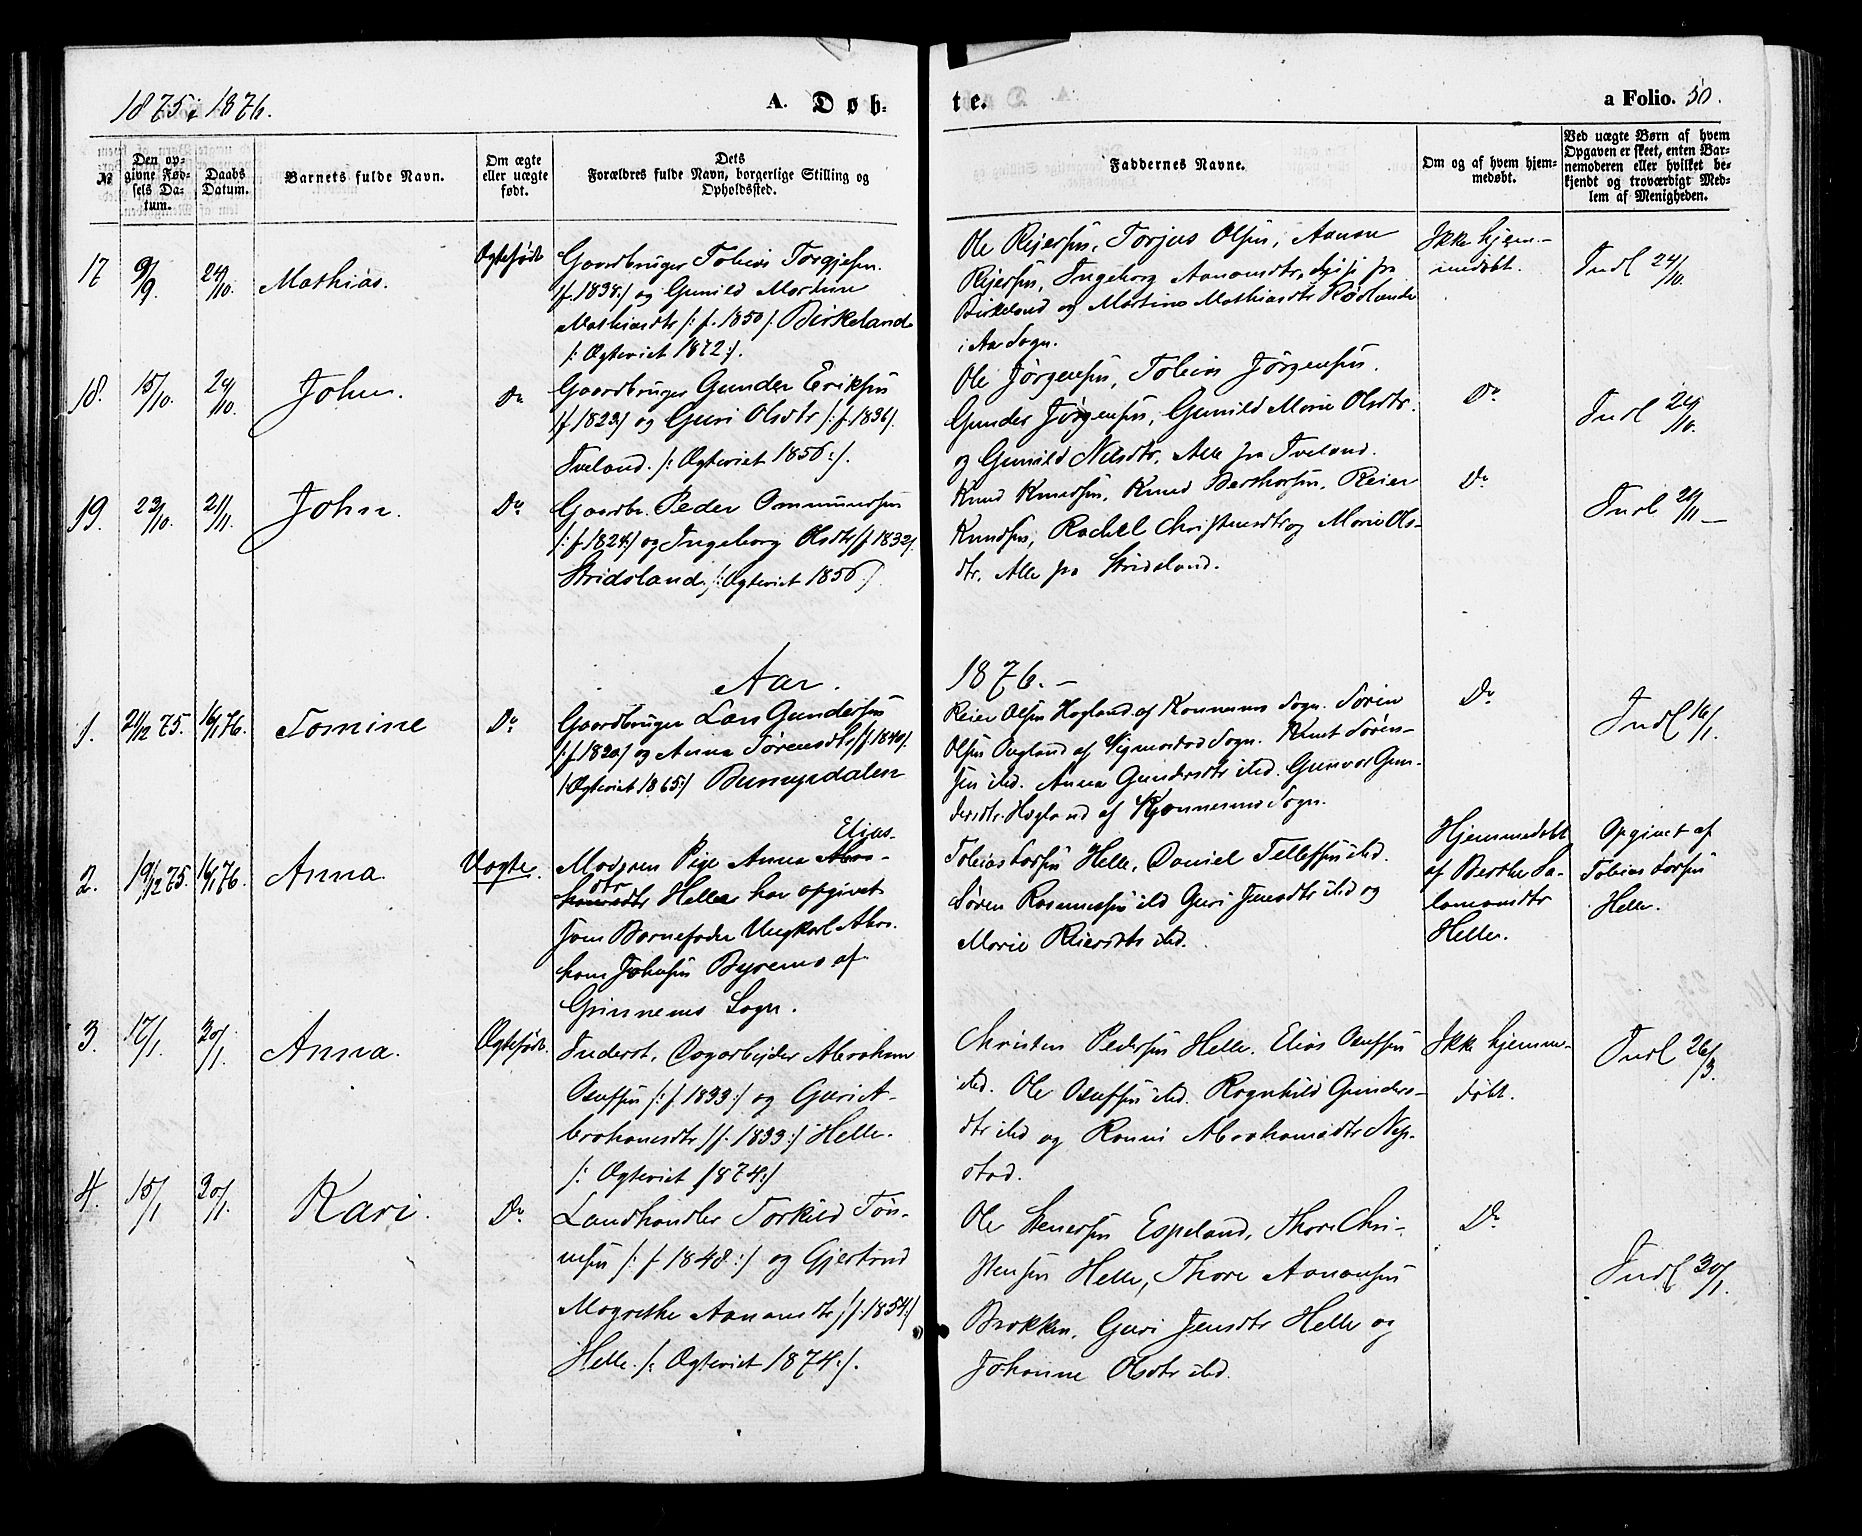 1875 & 1876.
A. Døb-
te.
a Folio. 50.
№
Den op-
givne Fød-
sels Da-
tum.
Daabs
Datum.
Barnets fulde Navn.
Om ægte
eller uægte
født.
Dets
Forældres fulde Navn, borgerlige Stilling og
Opholdssted.
Faddernes Navne.
Om og af hvem hjem-
medøbt.
Ved uægte Børn af hvem
Opgaven er skeet, enten Bar-
nemoderen eller hvilket be-
kjendt og troværdigt Med-
lem af Menigheden.
17 9/9 24/10. Mathias. Ægtefødt
Gaardbruger Tobias Torgjesen.
/:f. 1838:/ og Gunild Martine
Mathiasdtr /: f. 1850 /: Birkeland.
/: Ægteviet 1872:/.
Ole Reiersen, Torjus Olsen, Aanon
Reiersen, Ingeborg Aanonsdtr, fra
Birkeland og Martine Mathiasdtr Rødlande
i Aa Sogn.
Ikke hjem-
medøbt.
Indl 24/10.
18. 15/10. 24/10. John. Do
Gaardbruger Gunder Eriksen
/:f 1823:/ og Guri Olsdtr /: f. 1836/.
Tveland. /: Ægteviet 1856:/.
Ole Jørgensen, Tobias Jørgensen.
Gunder Jørgensen, Gunild Marie Olsdtr.
og Gunild Nilsdtr. Alle fra Tveland.
Do
Indl 24/10.
19. 23/10. 21/11. John. Do
Gaardbr. Peder Ommundsen
/:f 1824:/ og Ingeborg Olsdtr /:f 1832/.
Stridsland. /: Ægteviet 1856/
Knud Knudsen, Knud Berthorsen, Reier
Knudsen, Rachel Christensdtr og Marie Ols-
dtr. Alle fra Stridsland.
Do
Indl 21/11 —
Aar.
1876. —
1. 21/12 75. 16/1 76. Tomine Do
Gaardbruger Lars Gundersen
/:f 1820/ og Anna Sørensdtr /:f 1840/.
/Ægteviet 1865:/
Reier Olsen Høgland af Konnesmo Sogn. Søren
Olsen af Vigmostad Sogn. Knut Søren-
sen ibd. Anna Gundersdtr ibd. Gunvor Gun-
dersdtr. Høgland af Kjonnesmo Sogn.
Do
Indl 16/1.
2. 19/12 75. 16/1 76. Anna. Uægte.
Elias-
Moderen Pige Anna Abra-
dtr
hamsdtr Helle har opgivet
som Barnefader Ungkarl Abra-
ham Johnsen Byremo af
Grinnems Sogn.
Tobias Larsen Helle, Daniel Tellefsen ibd.
Søren Rasmussen ibd Guri Jensdtr ibd og
Marie Reiersdtr ibd.
Hjemmedøbt
af Berthe Sa-
lamonsdtr
Helle.
Opgivet af
Tobias Larsen
Helle.
3. 17/1. 30/1. Anna. Ægtefødt.
Inderst, Dagarbejder Abraham
Osufsen /: f 1833:/ og Guri A-
brahamsdtr /:f. 1833:/ Helle.
/: Ægteviet 1874:/
Christen Pedersen Helle. Elias Osufsen
ibd. Ole Osufsen ibd. Ragnhild Gunders-
dtr ibd og Ranni Abrahamsdtr Nep-
stad.
Ikke hjemme-
døbt.
Indl 26/3.
4. 15/1 30/1. Kari. Do
Landhandler Torkild Tøn-
nesen /: f 1848:/ og Gjertrud
Magrethe Aanonsdtr /:f. 1854:/
Helle. /: Ægteviet 1874:/.
Ole Stenersen Espeland, Thore Chri-
stensen Helle, Thore Aanonsen
Brokken, Guri Jensdtr Helle og
Johanne Olsdtr ibd.
Do
Indl 30/1.